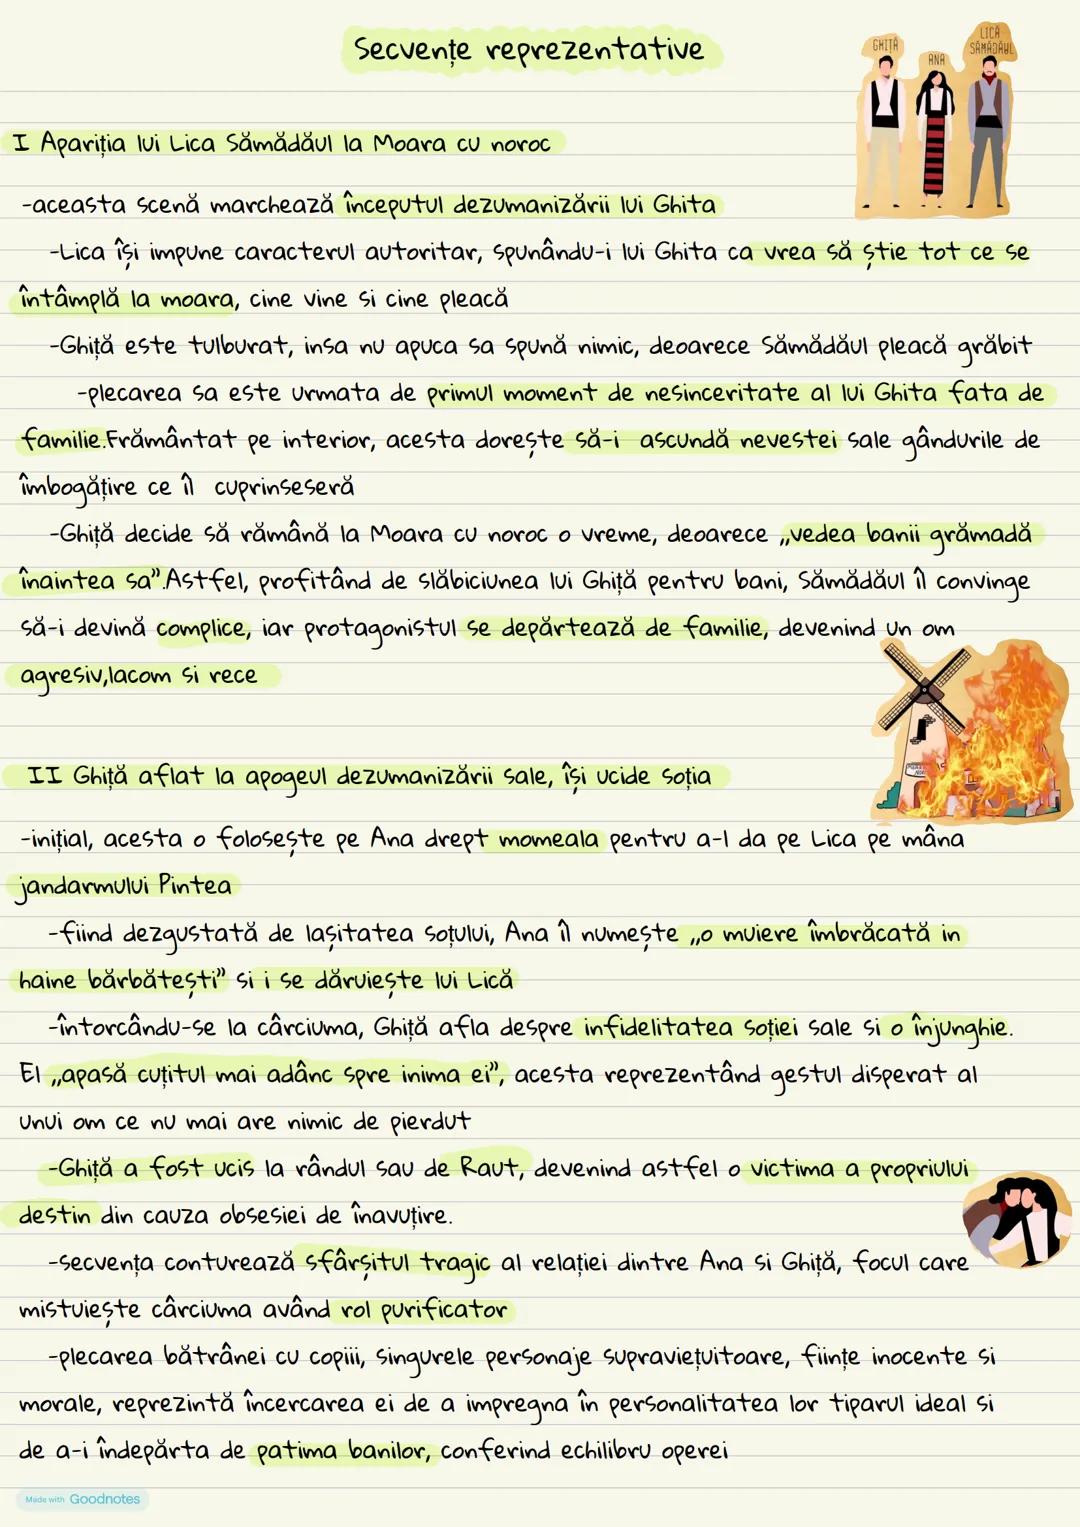 Secvențe reprezentative
GHIȚĂ
ANA
LICĂ
SĂMĂDĂUL
I Apariția lui Lica Sămădăul la Moara cu noroc
-aceasta scenă marchează începutul dezumanizării lui Ghita
-Lica își impune caracterul autoritar, spunându-i lui Ghita ca vrea să știe tot ce se
întâmplă la moara, cine vine si cine pleacă
-Ghiță este tulburat, insa nu apuca sa spună nimic, deoarece Sămădăul pleacă grăbit
-plecarea sa este urmata de primul moment de nesinceritate al lui Ghita fata de
familie.Frământat pe interior, acesta dorește să-i ascundă nevestei sale gândurile de
îmbogățire ce îl cuprinseseră
-Ghiță decide să rămână la Moara cu noroc o vreme, deoarece „vedea banii grămadă
înaintea sa”.Astfel, profitând de slăbiciunea lui Ghiță pentru bani, Sămădăul îl convinge
să-i devină complice, iar protagonistul se depărtează de familie, devenind un om
agresiv,lacom si rece
II Ghiță aflat la apogeul dezumanizării sale, își ucide soția
-inițial, acesta o folosește pe Ana drept momeala pentru a-l da pe Lica pe mâna
jandarmului Pintea
-fiind dezgustată de lașitatea soțului, Ana îl numește „o muiere îmbrăcată in
haine bărbătești” si i se dăruiește lui Lică
-întorcându-se la cârciuma, Ghiță afla despre infidelitatea soției sale si o înjunghie.
El „apasă cuțitul mai adânc spre inima ei”, acesta reprezentând gestul disperat al
unui om ce nu mai are nimic de pierdut
-Ghiță a fost ucis la rândul sau de Raut, devenind astfel o victima a propriului
destin din cauza obsesiei de înavuțire.
-secvența conturează sfârșitul tragic al relației dintre Ana si Ghiță, focul care
mistuiește cârciuma având rol purificator
-plecarea bătrânei cu copiii, singurele personaje supraviețuitoare, ființe inocente si
morale, reprezintă încercarea ei de a impregna în personalitatea lor tiparul ideal si
de a-i îndepărta de patima banilor, conferind echilibru operei
Made with Goodnotes